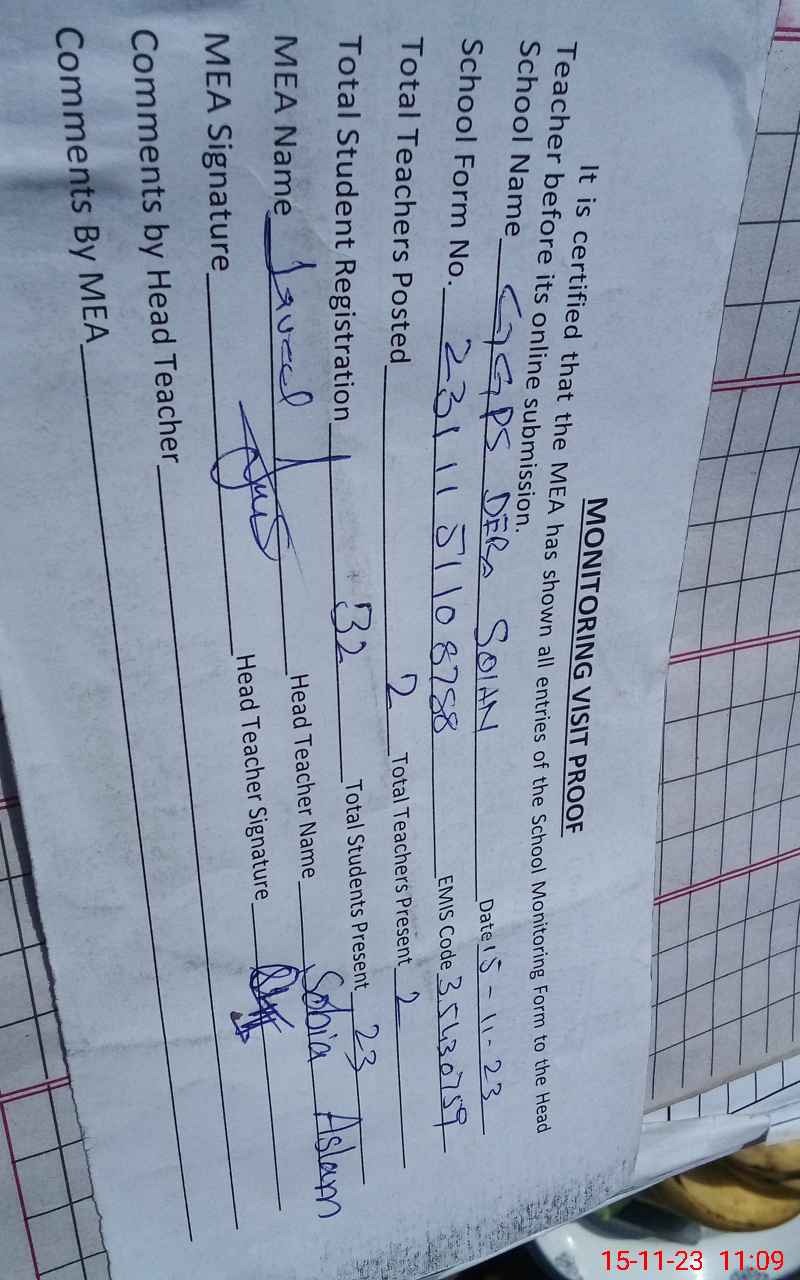 MONITORING VISIT PROOF
It is certified that the MEA has shown all entries of the School Monitoring Form to the Head
Teacher before its online submission.
School Name GGPS DERA SOIAN Date 15-11-23
School Form No. 2311151108788 EMIS Code 35430759
Total Teachers Posted 2 Total Teachers Present 2
Total Student Registration 32 Total Students Present 23
MEA Name Javeed Head Teacher Name Sobia Aslam
MEA Signature Head Teacher Signature
Comments by Head Teacher
Comments By MEA
15-11-23 11:09